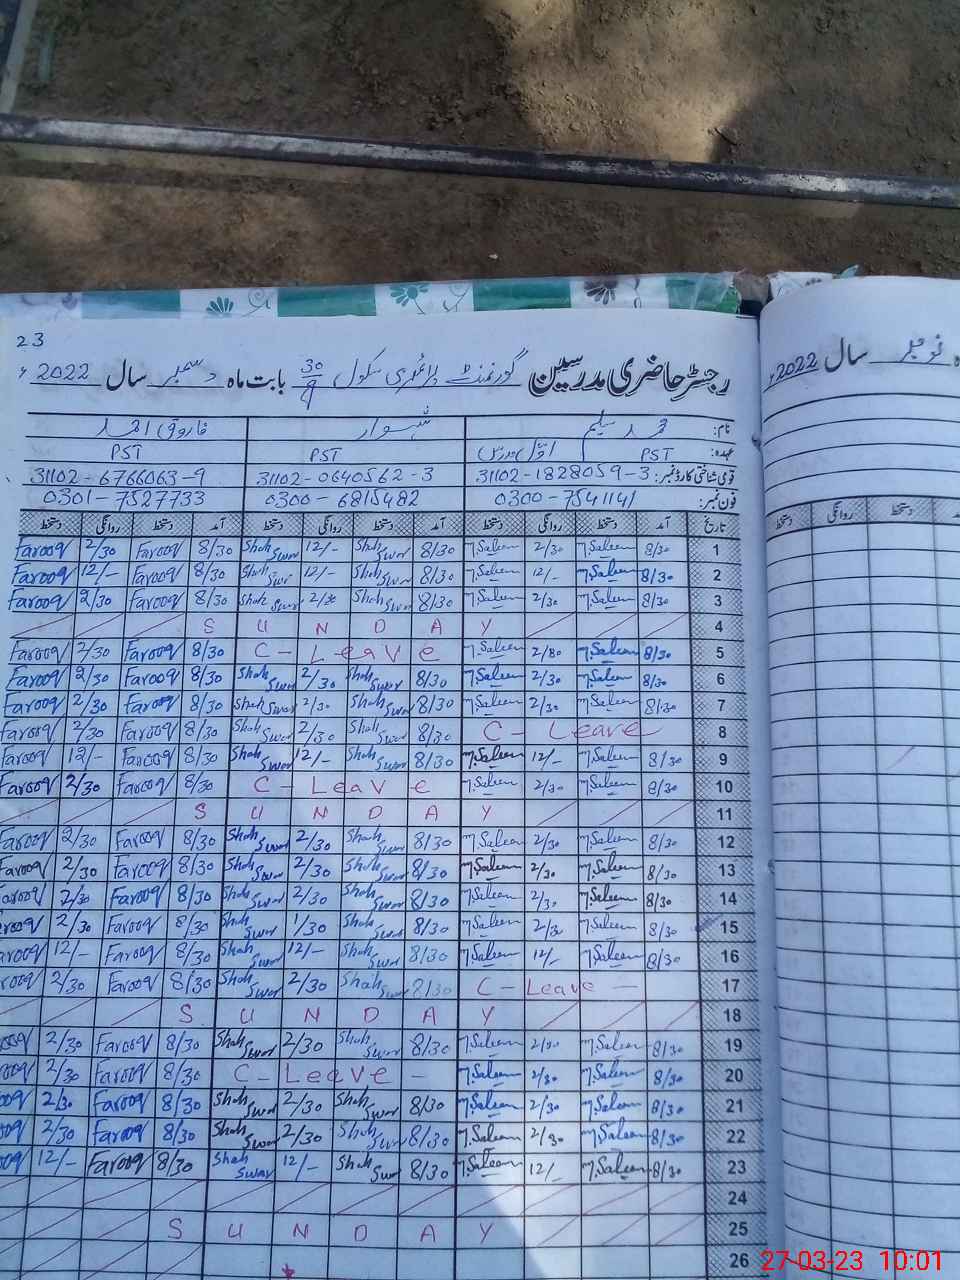 23
رجسٹر حاضری مدرسین گورنمنٹ پرائمری سکول 30/9 بابت ماہ دسمبر سال 2022ء
نومبر سال 2022ء
نام: محمد سلیم شہسوار فاروق احمد
عہدہ: PST اوّل مدرس PST PST
قومی شناختی کارڈ نمبر: 31102-1828059-3 31102-0640562-3 31102-6766063-9
فون نمبر: 0300-7541141 0300-6815482 0301-7527733
تاریخ آمد دستخط روانگی دستخط آمد دستخط روانگی دستخط آمد دستخط روانگی دستخط
دستخط روانگی دستخط
Farooq 2/30 Farooq 8/30 Shah Swar 12/- Shah Swar 8/30 M.Saleem 2/30 M.Saleem 8/30 1
Farooq 12/- Farooq 8/30 Shah Swar 12/- Shah Swar 8/30 M.Saleem 12/- M.Saleem 8/30 2
Farooq 2/30 Farooq 8/30 Shah Swar 2/30 Shah Swar 8/30 M.Saleem 2/30 M.Saleem 8/30 3
SUNDAY 4
Farooq 2/30 Farooq 8/30 C-Leave M.Saleem 2/30 M.Saleem 8/30 5
Farooq 2/30 Farooq 8/30 Shah Swar 2/30 Shah Swar 8/30 M.Saleem 2/30 M.Saleem 8/30 6
Farooq 2/30 Farooq 8/30 Shah Swar 2/30 Shah Swar 8/30 M.Saleem 2/30 M.Saleem 8/30 7
Farooq 2/30 Farooq 8/30 Shah Swar 2/30 Shah Swar 8/30 C-Leave 8
Farooq 12/- Farooq 8/30 Shah Swar 12/- Shah Swar 8/30 M.Saleem 12/- M.Saleem 8/30 9
Farooq 2/30 Farooq 8/30 C-Leave M.Saleem 2/30 M.Saleem 8/30 10
SUNDAY 11
Farooq 2/30 Farooq 8/30 Shah Swar 2/30 Shah Swar 8/30 M.Saleem 2/30 M.Saleem 8/30 12
Farooq 2/30 Farooq 8/30 Shah Swar 2/30 Shah Swar 8/30 M.Saleem 2/30 M.Saleem 8/30 13
Farooq 2/30 Farooq 8/30 Shah Swar 2/30 Shah Swar 8/30 M.Saleem 2/30 M.Saleem 8/30 14
2/30 Farooq 8/30 Shah Swar 1/30 Shah Swar 8/30 M.Saleem 2/30 M.Saleem 8/30 15
12/- Farooq 8/30 Shah Swar 12/- Shah Swar 8/30 M.Saleem 12/- M.Saleem 8/30 16
2/30 Farooq 8/30 Shah Swar 2/30 Shah Swar 8/30 C-Leave - 17
SUNDAY 18
2/30 Farooq 8/30 Shah Swar 2/30 Shah Swar 8/30 M.Saleem 2/30 M.Saleem 8/30 19
2/30 Farooq 8/30 C-Leave - M.Saleem 2/30 M.Saleem 8/30 20
2/30 Farooq 8/30 Shah Swar 2/30 Shah Swar 8/30 M.Saleem 2/30 M.Saleem 8/30 21
2/30 Farooq 8/30 Shah Swar 2/30 Shah Swar 8/30 M.Saleem 2/30 M.Saleem 8/30 22
12/- Farooq 8/30 Shah Swar 12/- Shah Swar 8/30 M.Saleem 12/ M.Saleem 8/30 23
24
SUNDAY 25
26
27-03-23 10:01